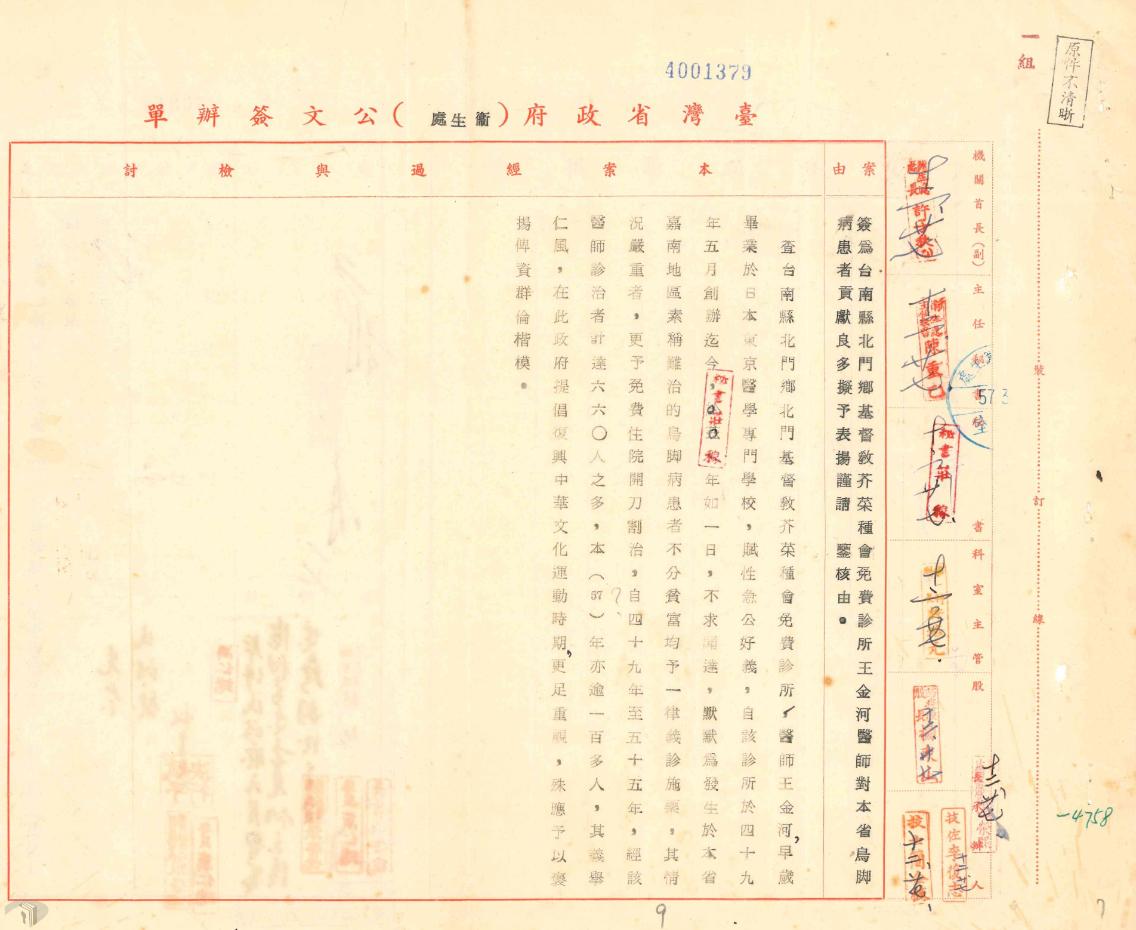 原件不清晰
一組
4001379
臺灣省政府（衞生處）公文簽辦單
案由
簽爲台南縣北門鄉基督敎芥菜種會免費診所王金河醫師對本省烏脚
病患者貢獻良多擬予表揚謹請　鑒核由。
本案經過與檢討
查台南縣北門鄉北門基督敎芥菜種會免費診所，醫師王金河，早歲
畢業於日本東京醫學專門學校，賦性急公好義，自該診所於四十九
年五月創辦迄今，年如一日，不求達，默默爲發生於本省
嘉南地區素稱難治的烏脚病患者不分貧富均予一律義診施藥，其情
況嚴重者，更予免費住院開刀割治，自四十九年至五十五年，經該
醫師診治者計達六六〇人之多，本（57）年亦逾一百多人，其義舉
仁風，在此政府提倡復興中華文化運動時期，更足重視，殊應予以褒
揚俾資群倫楷模。
機關首長（副）
主任秘書
秘書
科室主管
股長
承辦人
秘書莊稼
秘書莊稼
陳重
技佐李俊志
573
裝訂線
-4758
9
7